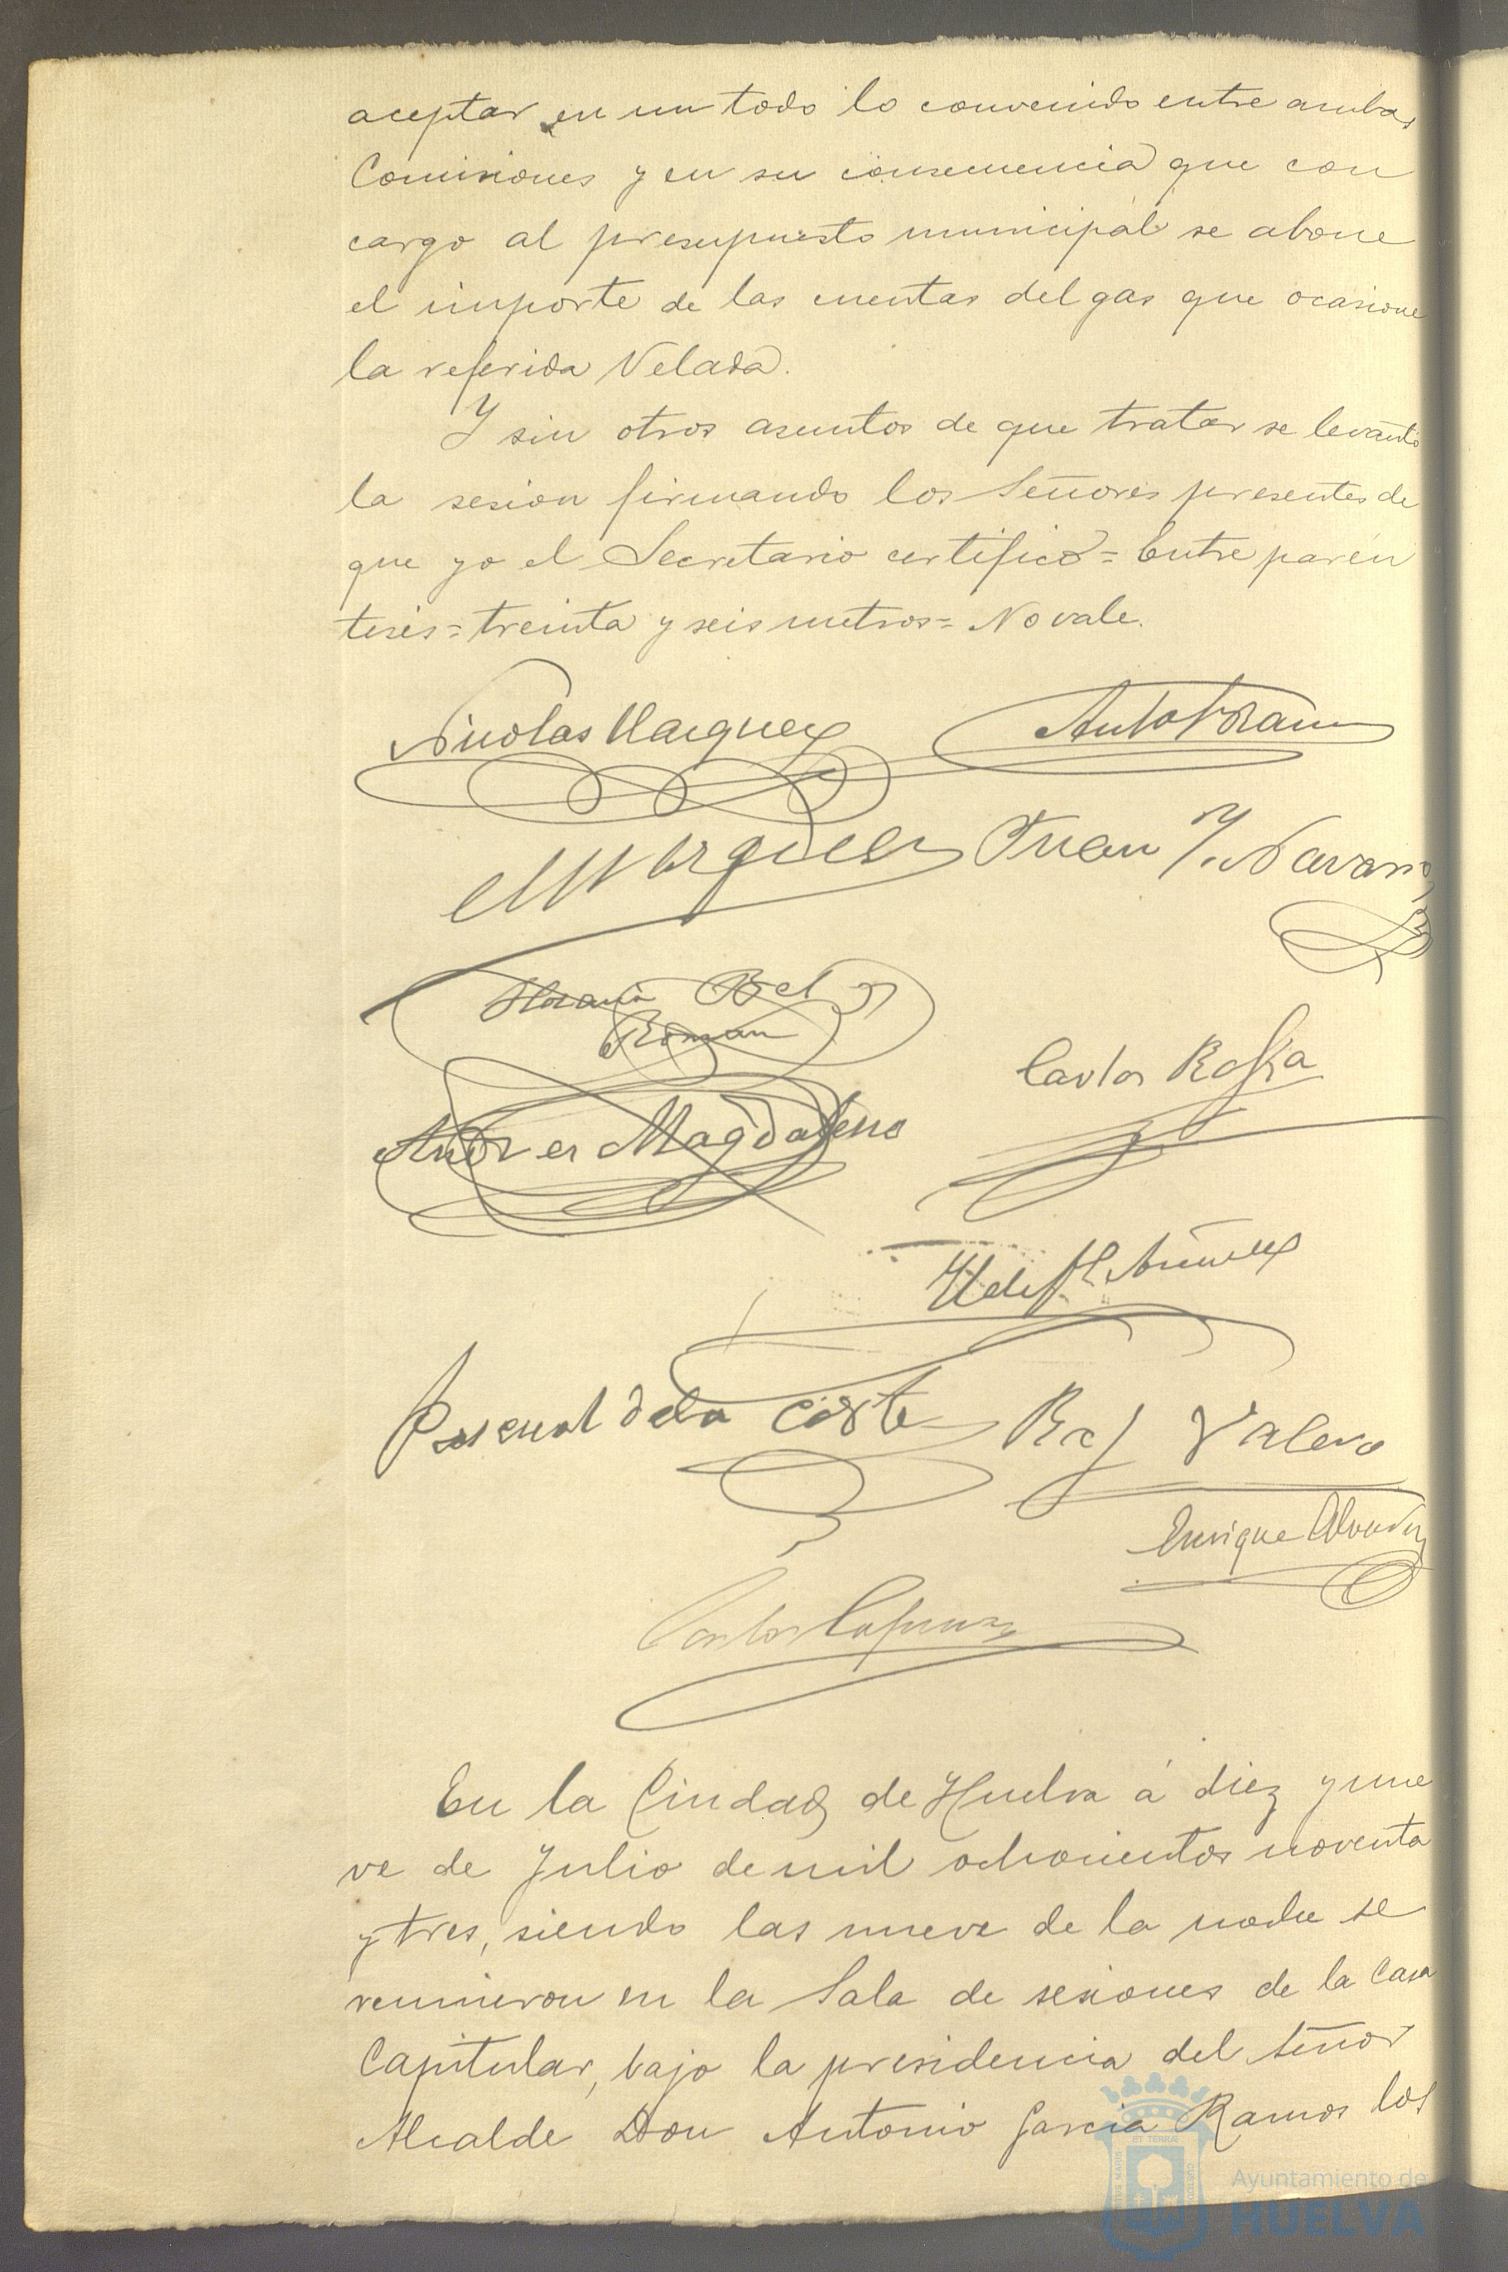 aceptar en un todo lo convenido entre ambas
Comisiones y en su consecuencia que con
cargo al presupuesto municipal se abone
el importe de las cuentas del gas que ocasione
la referida Velada.
Y sin otros asuntos de que tratar se levantó
la sesion firmando los Señores presentes de
que yo el Secretario certifico = Entre parén
tesis = treinta y seis metros = No vale.
Nicolas Vazquez
Juan Y. Navarro
Horacio Bel y
Roman
Carlos
Andres Magdaleno
Pascual de la Corte
Raf Valero
Enrique
Carlos
En la Ciudad de Huelva á diez y nue
ve de Julio de mil ochocientos noventa
y tres, siendo las nueve de la noche se
reunieron en la Sala de sesiones de la Casa
Capitular, bajo la presidencia del Señor
Alcalde Don Antonio Garcia Ramos los
Ayuntamiento de
HUELVA